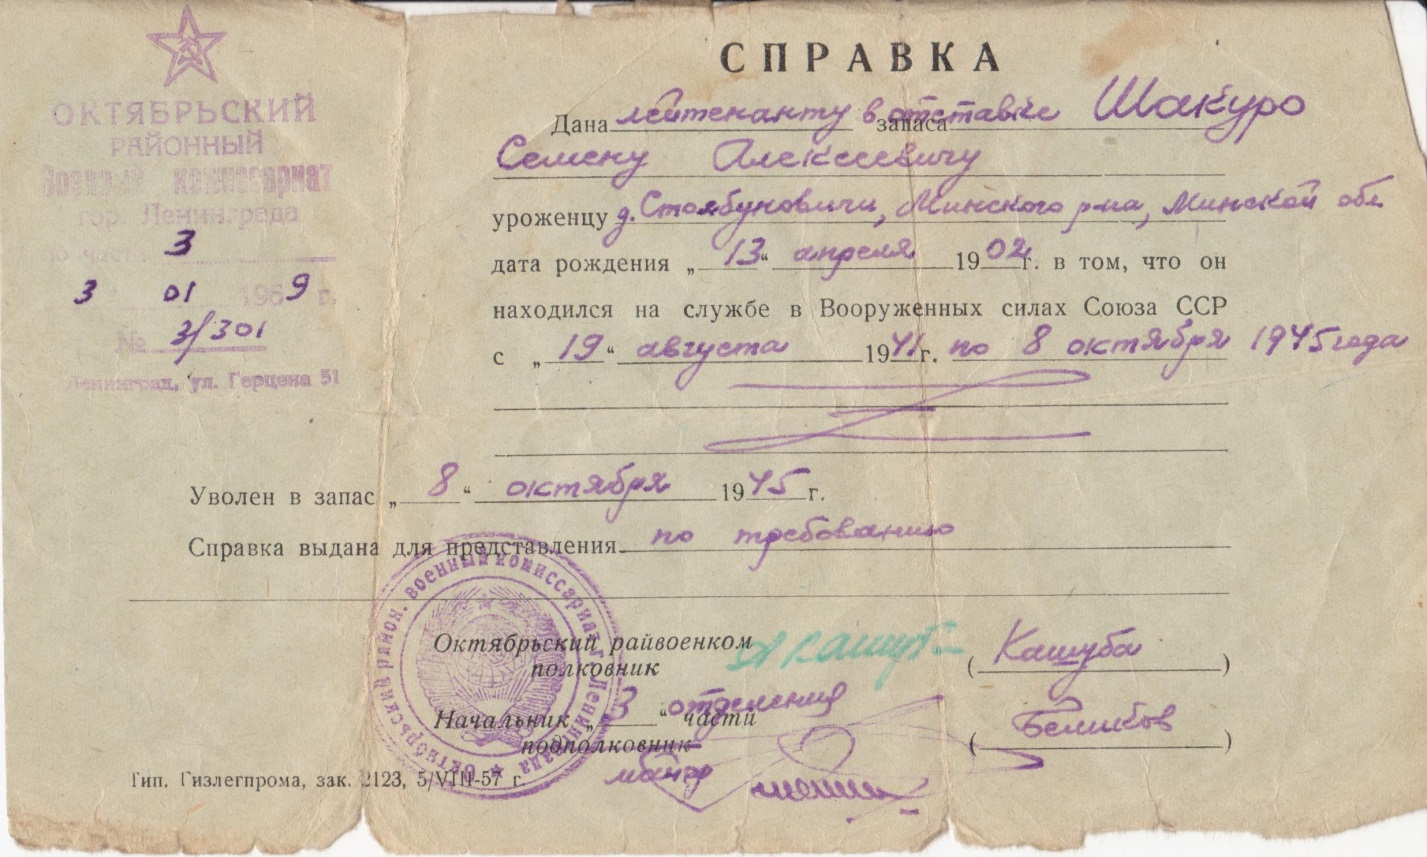 ОКТЯБРЬСКИЙ
РАЙОННЫЙ
Военный комиссариат
гор. Ленинграда
по части 3
3 01 1969 г.
№ 3/301
Ленинград, ул. Герцена 51
СПРАВКА
Дана лейтенанту в отставке запаса Шакуро
Семену Алексеевичу
уроженцу д. Столбуновичи, Минского р-на, Минской обл.
дата рождения „13“ апреля 1902 г. в том, что он
находился на службе в Вооруженных силах Союза ССР
с „19“ августа 1941 г. по 8 октября 1945 года
Уволен в запас „8“ октября 1945 г.
Справка выдана для представления по требованию
Октябрьский райвоенком
полковник (Кашуба)
Начальник „3“ части отделения
подполковник (Беликов)
майор
Октябрьский район. военный комиссариат г. Ленинграда
Тип. Гизлегпрома, зак. 2123, 5/VIII-57 г.